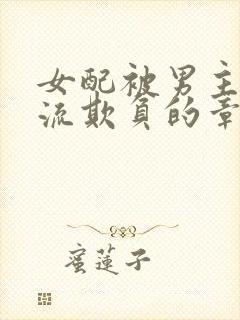 女配被男主
流欺负的章
蜜莲子